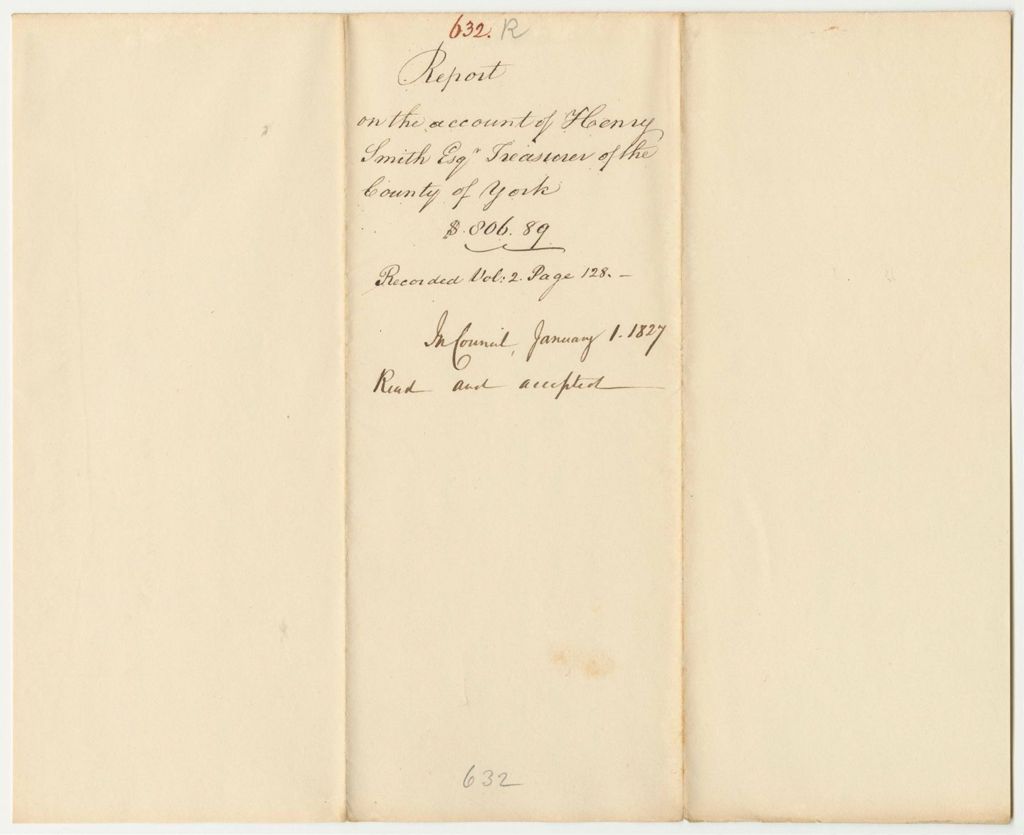 632. R
Report
on the account of Henry
Smith Esqr Treasurer of the
County of York
$.806.89
Recorded Vol: 2. Page 128. –
In Council, January 1. 1827
Read and accepted
632